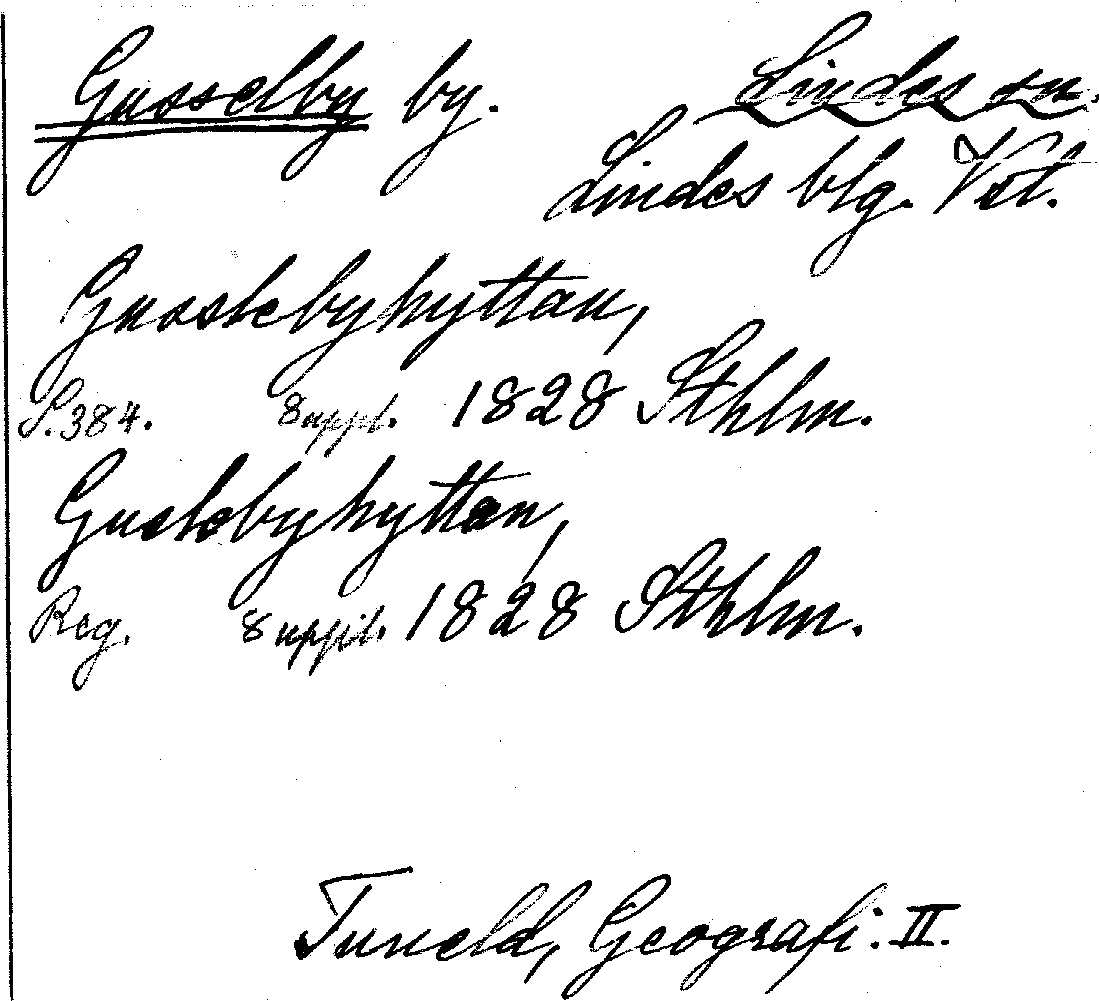 Gusselby by. Lindes sn.
Lindes blg. Vstl.
Gusslebyhyttan,
S. 384. 8 uppl. 1828 Sthlm.
Guslebyhyttan,
Reg. 8 uppl. 1828 Sthlm.
Tuneld, Geografi. II.